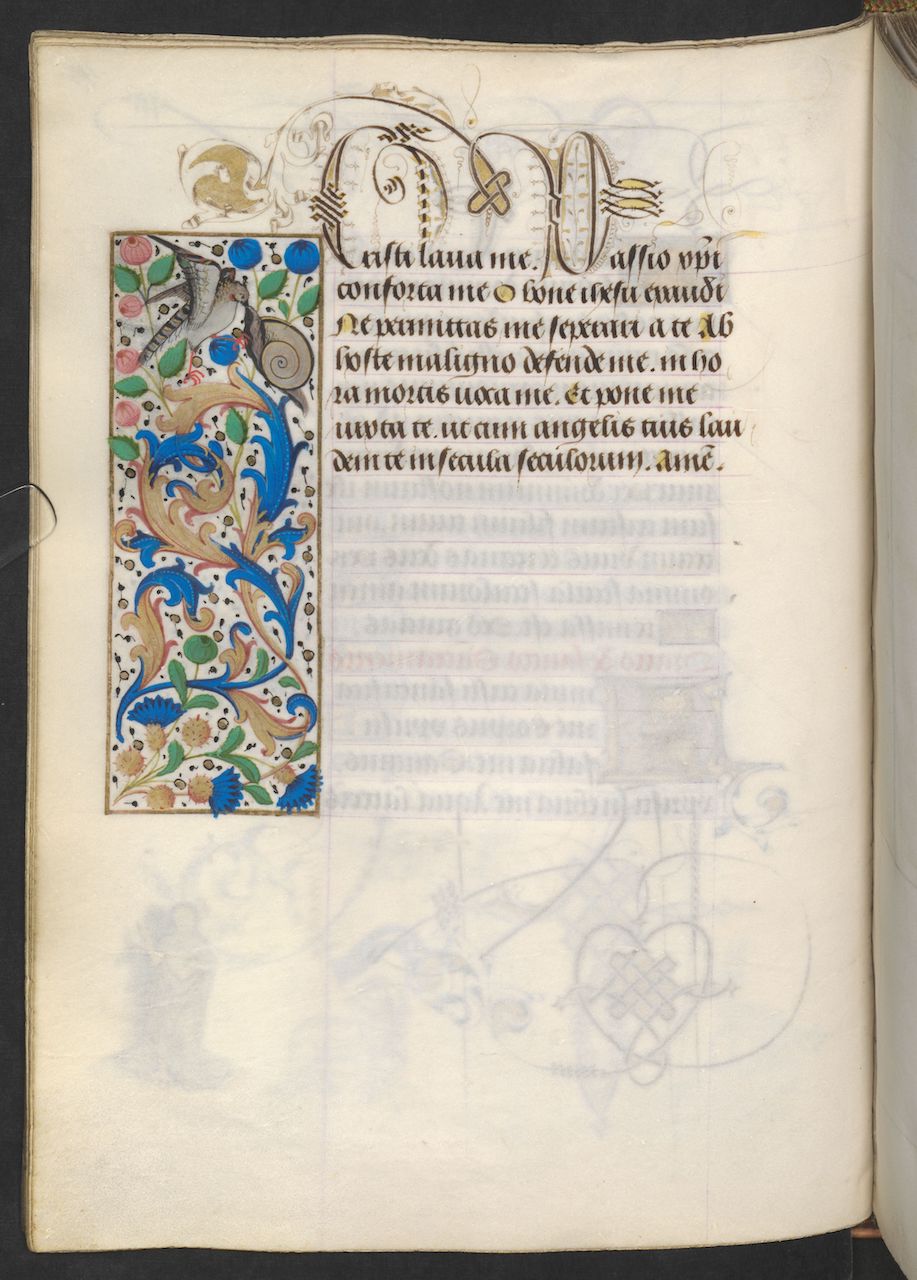 Cristi laua me. Passio xpi
conforta me O bone ihesu exaudi
Ne permittas me seperari a te Ab
hoste maligno defende me. in ho
ra mortis uoca me. Et pone me
iuxta te. ut cum angelis tuis lau
dem te in secula seculorum. Amē.